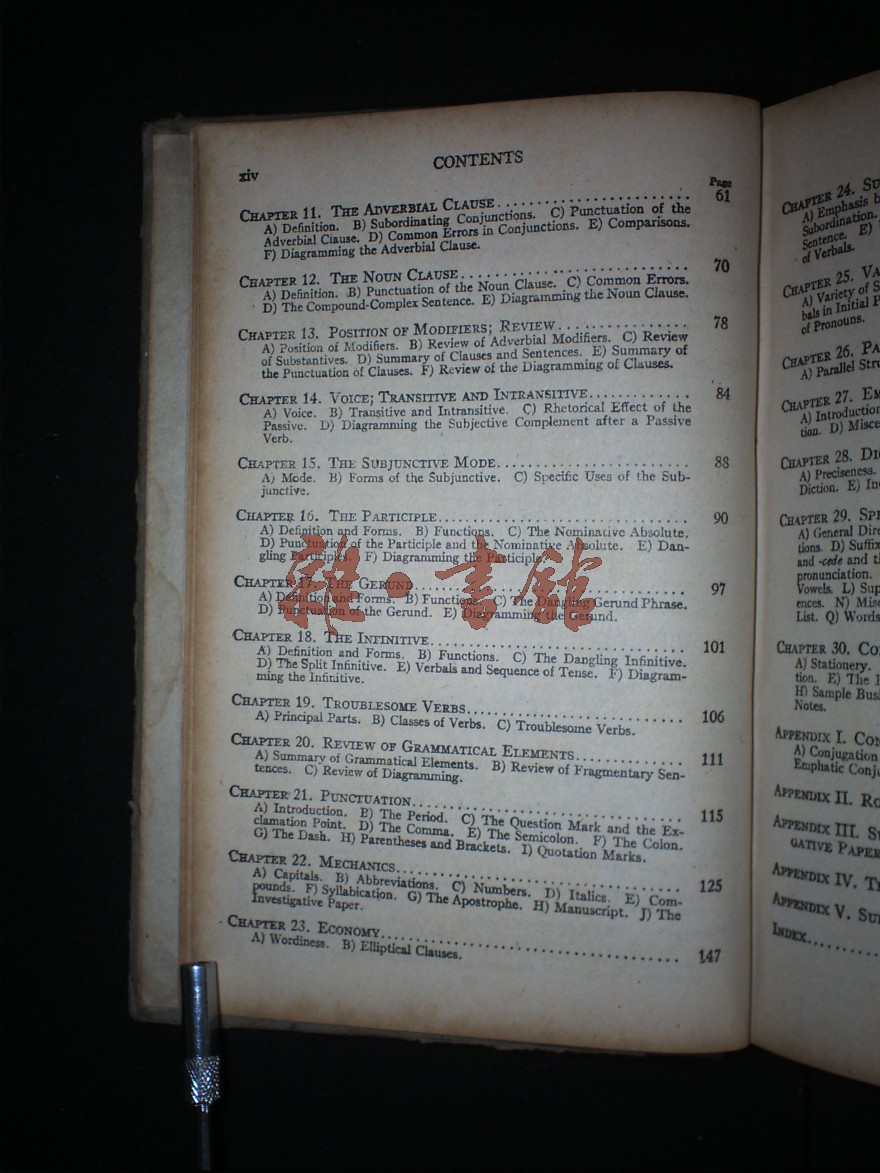 xiv
CONTENTS
Page
CHAPTER 11. THE ADVERBIAL CLAUSE........................ 61
A) Definition. B) Subordinating Conjunctions. C) Punctuation of the
Adverbial Clause. D) Common Errors in Conjunctions. E) Comparisons.
F) Diagramming the Adverbial Clause.
CHAPTER 12. THE NOUN CLAUSE............................ 70
A) Definition. B) Punctuation of the Noun Clause. C) Common Errors.
D) The Compound-Complex Sentence. E) Diagramming the Noun Clause.
CHAPTER 13. POSITION OF MODIFIERS; REVIEW................ 78
A) Position of Modifiers. B) Review of Adverbial Modifiers. C) Review
of Substantives. D) Summary of Clauses and Sentences. E) Summary of
the Punctuation of Clauses. F) Review of the Diagramming of Clauses.
CHAPTER 14. VOICE; TRANSITIVE AND INTRANSITIVE............ 84
A) Voice. B) Transitive and Intransitive. C) Rhetorical Effect of the
Passive. D) Diagramming the Subjective Complement after a Passive
Verb.
CHAPTER 15. THE SUBJUNCTIVE MODE........................ 88
A) Mode. B) Forms of the Subjunctive. C) Specific Uses of the Sub-
junctive.
CHAPTER 16. THE PARTICIPLE............................... 90
A) Definition and Forms. B) Functions. C) The Nominative Absolute.
D) Punctuation of the Participle and the Nominative Absolute. E) Dan-
gling Participles. F) Diagramming the Participle.
CHAPTER 17. THE GERUND.................................. 97
A) Definition and Forms. B) Functions. C) The Dangling Gerund Phrase.
D) Punctuation of the Gerund. E) Diagramming the Gerund.
CHAPTER 18. THE INFINITIVE................................ 101
A) Definition and Forms. B) Functions. C) The Dangling Infinitive.
D) The Split Infinitive. E) Verbals and Sequence of Tense. F) Diagram-
ming the Infinitive.
CHAPTER 19. TROUBLESOME VERBS........................... 106
A) Principal Parts. B) Classes of Verbs. C) Troublesome Verbs.
CHAPTER 20. REVIEW OF GRAMMATICAL ELEMENTS.............. 111
A) Summary of Grammatical Elements. B) Review of Fragmentary Sen-
tences. C) Review of Diagramming.
CHAPTER 21. PUNCTUATION.................................. 115
A) Introduction. B) The Period. C) The Question Mark and the Ex-
clamation Point. D) The Comma. E) The Semicolon. F) The Colon.
G) The Dash. H) Parentheses and Brackets. I) Quotation Marks.
CHAPTER 22. MECHANICS.................................... 125
A) Capitals. B) Abbreviations. C) Numbers. D) Italics. E) Com-
pounds. F) Syllabication. G) The Apostrophe. H) Manuscript. J) The
Investigative Paper.
CHAPTER 23. ECONOMY...................................... 147
A) Wordiness. B) Elliptical Clauses.
書館
CHAPTER 24. SU
A) Emphasis b
Subordination.
Sentence. E)
of Verbals.
CHAPTER 25. VA
A) Variety of S
bals in Initial P
of Pronouns.
CHAPTER 26. PA
A) Parallel Stru
CHAPTER 27. EM
A) Introduction
tion. D) Misce
CHAPTER 28. DI
A) Preciseness.
Diction. E) In
CHAPTER 29. SPE
A) General Dire
tions. D) Suffix
and -cede and th
pronunciation.
Vowels. L) Sup
ences. N) Misc
List. Q) Words
CHAPTER 30. CO
A) Stationery.
tion. E) The I
H) Sample Busi
Notes.
APPENDIX I. CON
A) Conjugation
Emphatic Conju
APPENDIX II. RO
APPENDIX III. S
GATIVE PAPER
APPENDIX IV. T
APPENDIX V. SU
INDEX.........